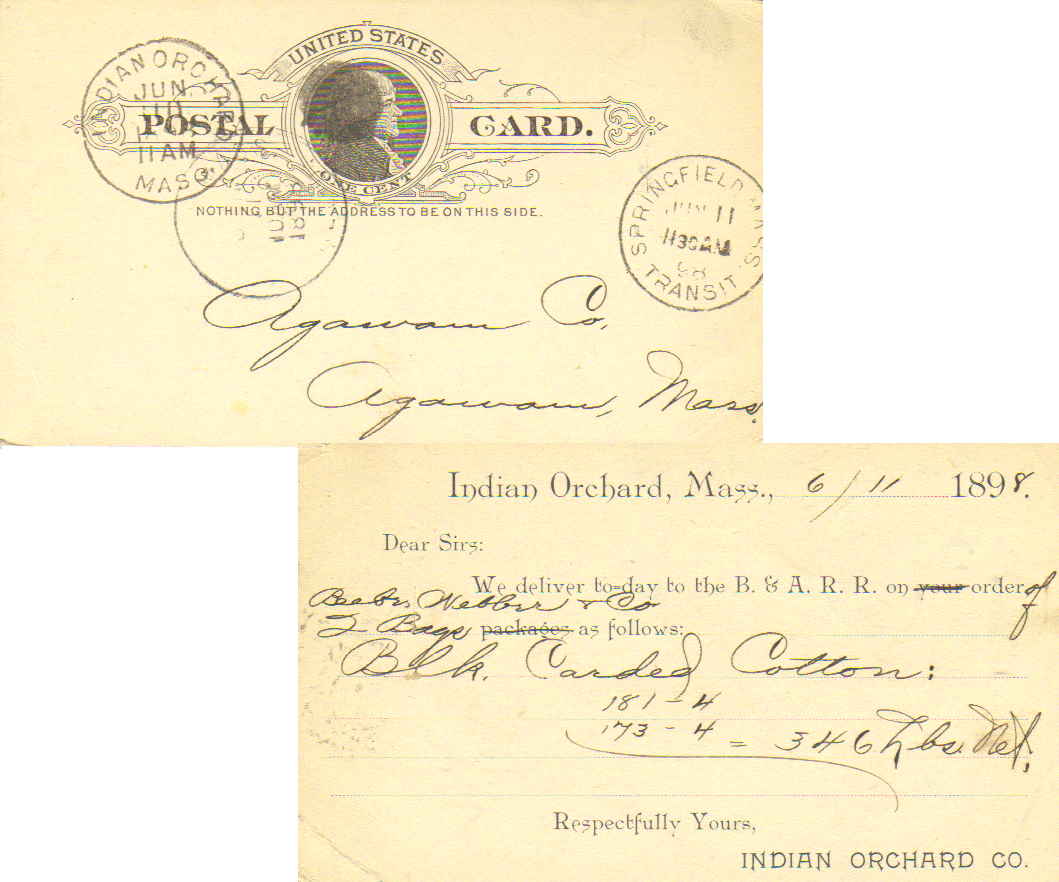 UNITED STATES
POSTAL CARD.
ONE CENT
NOTHING BUT THE ADDRESS TO BE ON THIS SIDE.
INDIAN ORCHARD
JUN
11
11 AM
MASS
SPRINGFIELD MASS.
JUN 11
1130AM
98
TRANSIT
Agawam Co.
Agawam, Mass.
Indian Orchard, Mass., 6/11 1898.
Dear Sirs:
We deliver to-day to the B. & A. R. R. on your order of
Beebe, Webber & Co
2 Bags packages as follows:
Blk. Carded Cotton:
181-4
173-4 = 346 Lbs. Net.
Respectfully Yours,
INDIAN ORCHARD CO.